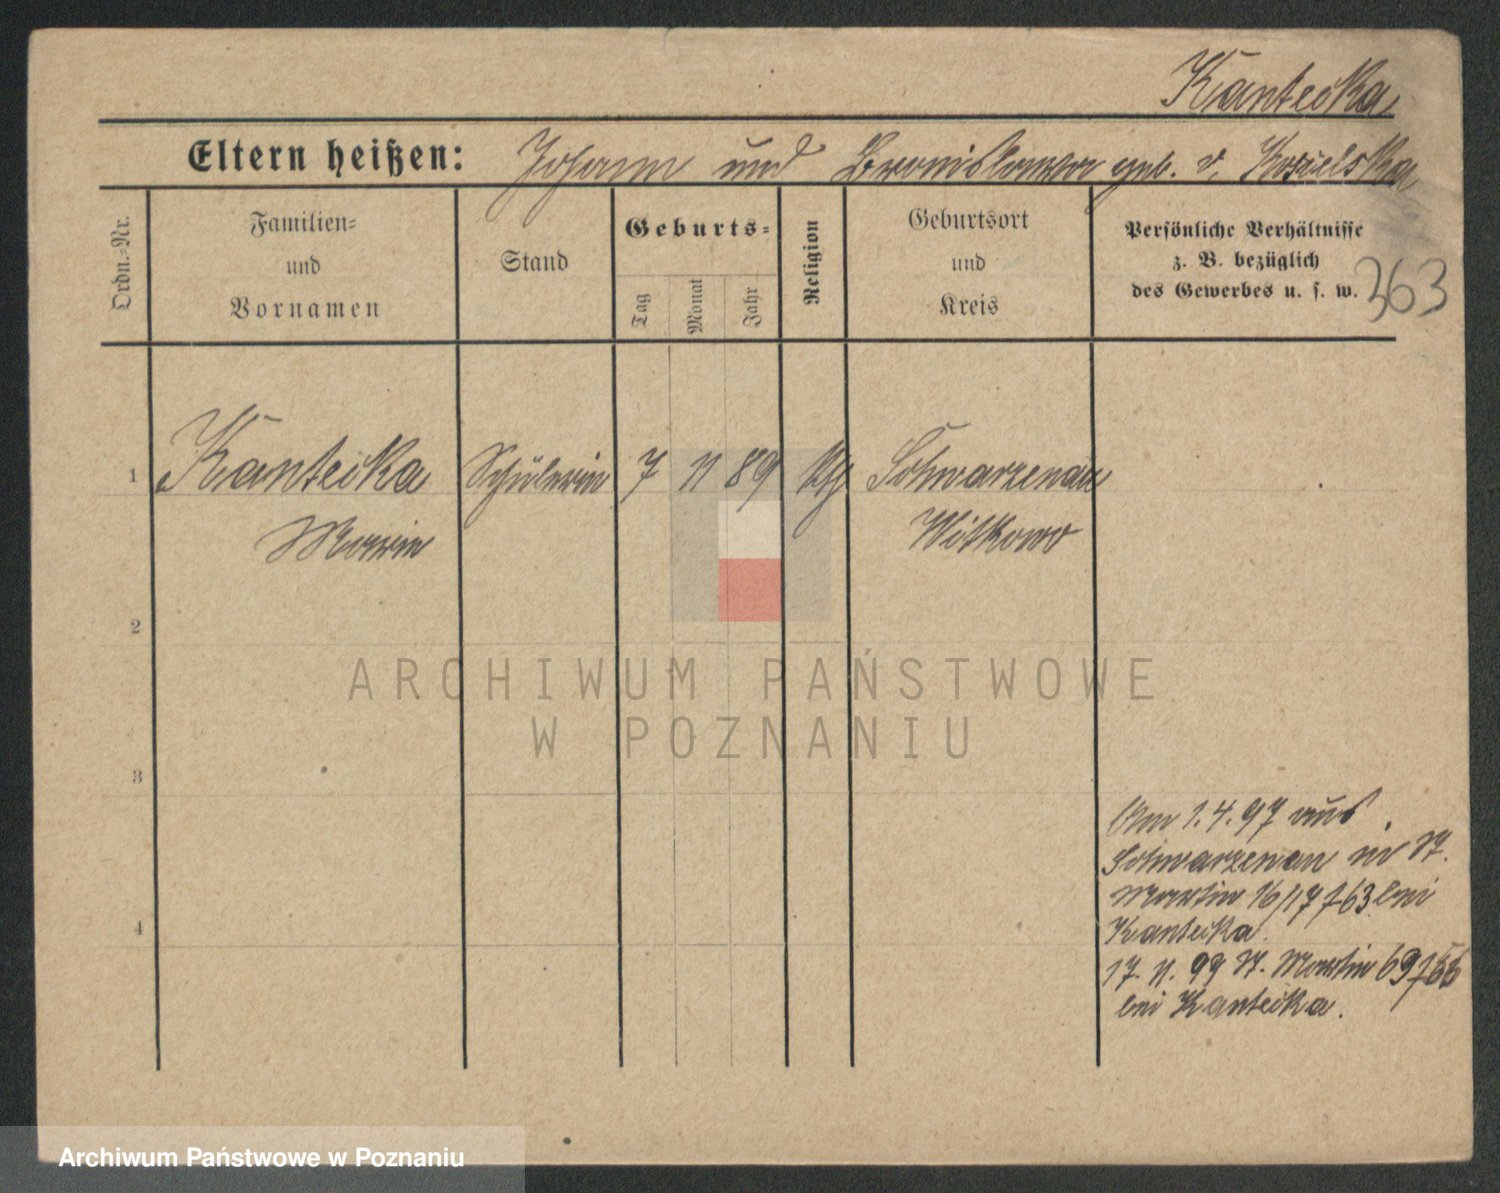 Kantecka
Eltern heißen: Johann und Bronislawa geb. v.
Ordn.-Nr.
Familien-
und
Vornamen
Stand
Geburts-
Tag
Monat
Jahr
Religion
Geburtsort
und
Kreis
Persönliche Verhältnisse
z. B. bezüglich
des Gewerbes u. s. w.
363
1 Kantecka Schülerin 7 11 89 kth Schwarzenau
Marie Witkowo
2
3
4
Am 1. 4. 97 aus
Schwarzenau in St.
Martin 16/17 f63 bei
Kantecka.
17. 11. 99 St. Martin 69
bei Kantecka.
ARCHIWUM PAŃSTWOWE
W POZNANIU
Archiwum Państwowe w Poznaniu